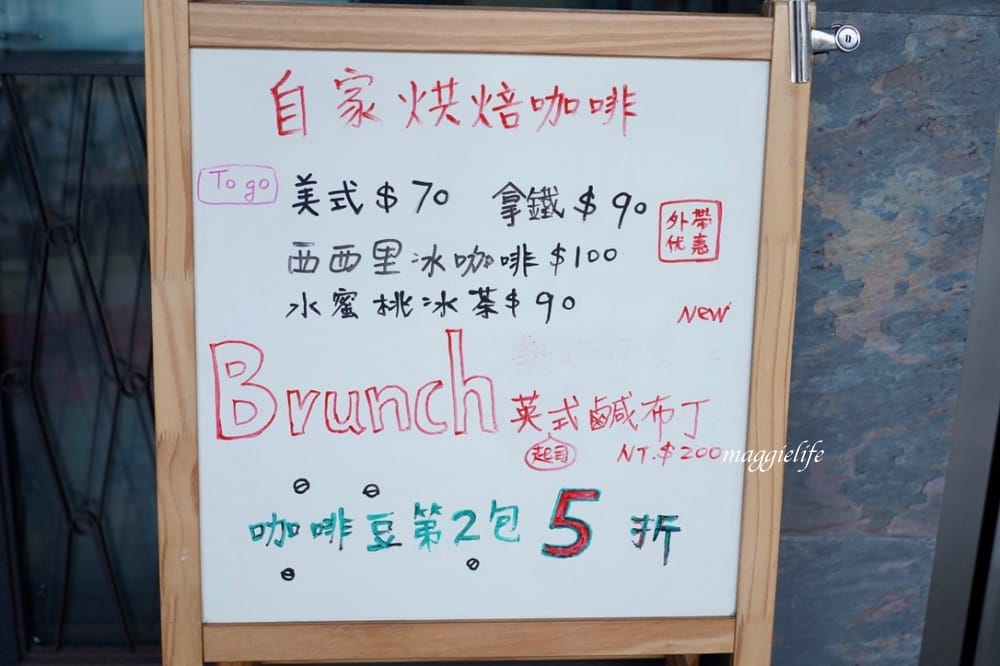 自家烘焙咖啡
To go 美式$70 拿鐵$90
外帶
优惠
西西里冰咖啡$100
水蜜桃冰茶$90
NEW
Brunch 英式鹹布丁
起司 NT.$200
maggielife
咖啡豆第2包5折